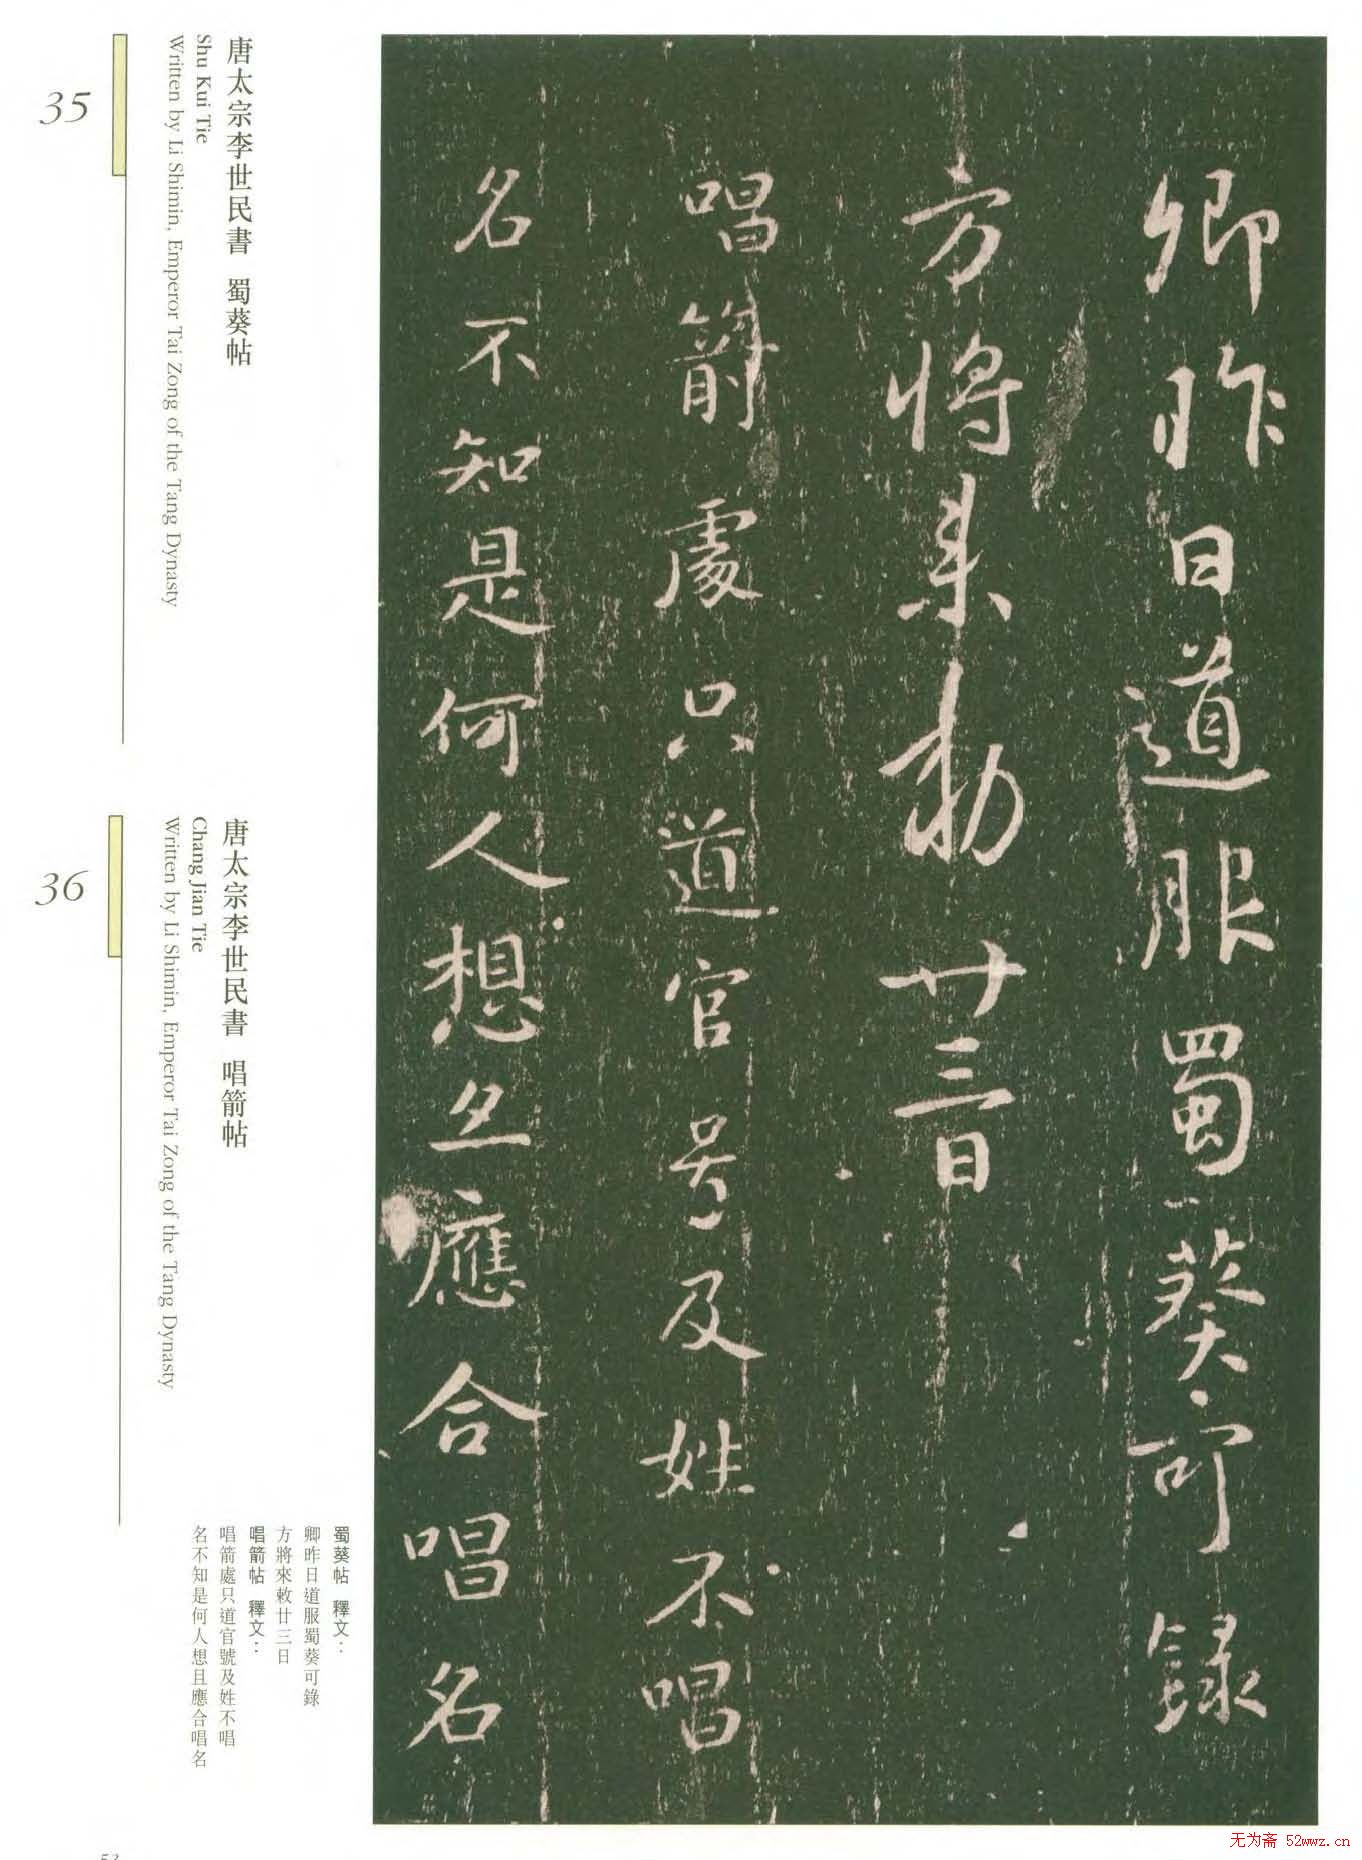 卿昨日道服蜀葵可錄
方將来勅廿三日
唱箭處只道官号及姓不唱
名不知是何人想且應合唱名
35
唐太宗李世民書 蜀葵帖
Shu Kui Tie
Written by Li Shimin, Emperor Tai Zong of the Tang Dynasty
36
唐太宗李世民書 唱箭帖
Chang Jian Tie
Written by Li Shimin, Emperor Tai Zong of the Tang Dynasty
蜀葵帖 釋文：
卿昨日道服蜀葵可錄
方將來敕廿三日
唱箭帖 釋文：
唱箭處只道官號及姓不唱
名不知是何人想且應合唱名
无为斋 52wwz.cn